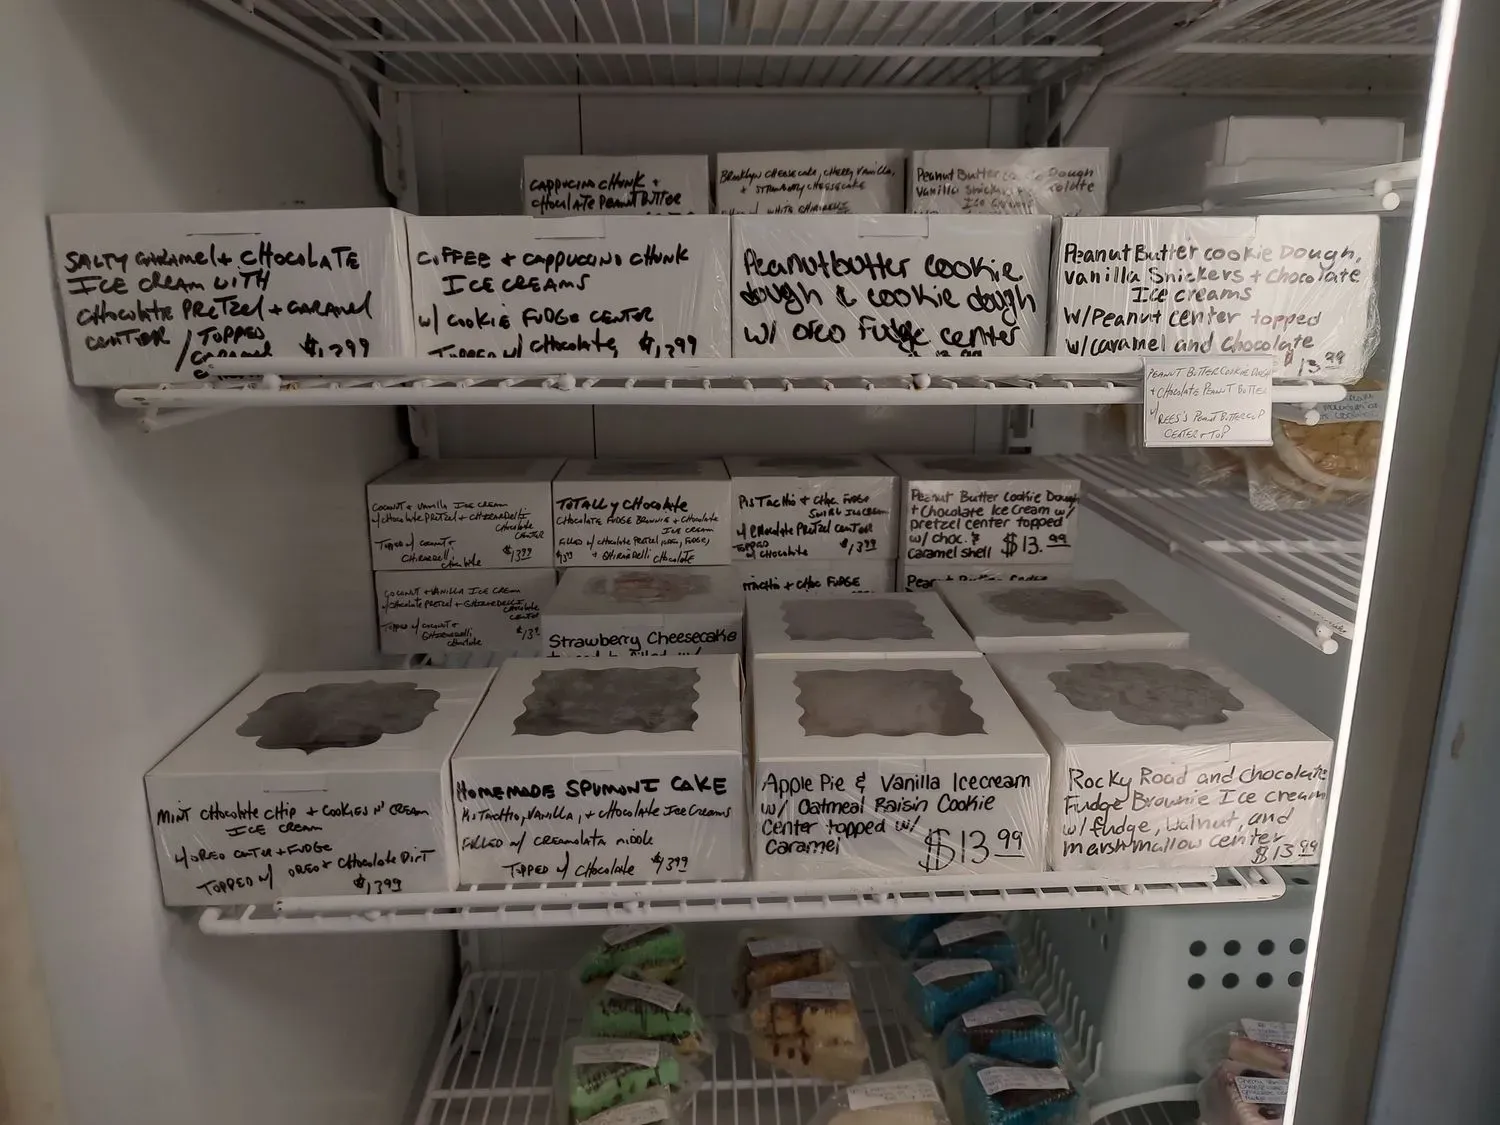 CAPPUCINO CHUNK +
CHOCOLATE PEANUT BUTTER
BROOKLYN CHEESECAKE, CHERRY VANILLA,
+ STRAWBERRY CHEESECAKE
W/ WHITE GHIRARDELLI
Peanut Butter Dough
Vanilla Snickers + Chocolate
Ice Creams
SALTY CARAMEL + CHOCOLATE
ICE CREAM WITH
CHOCOLATE PRETZEL + CARAMEL
CENTER / TOPPED
CARAMEL $13.99
COFFEE + CAPPUCINO CHUNK
ICE CREAMS
W/ COOKIE FUDGE CENTER
TOPPED W/ CHOCOLATE $13.99
Peanutbutter cookie
dough & cookie dough
w/ oreo Fudge center
Peanut Butter cookie Dough,
vanilla Snickers + Chocolate
Ice creams
w/Peanut center topped
w/caramel and chocolate
$13.99
PEANUT BUTTER COOKIE DOUGH
+ CHOCOLATE PEANUT BUTTER
W/ REES'S PEANUT BUTTER CUP
CENTER + TOP
COCONUT + VANILLA ICE CREAM
W/ CHOCOLATE PRETZEL + GHIRARDELLI
CHOCOLATE
CENTER
TOPPED W/ COCONUT +
GHIRARDELLI Chocolate $13.99
TOTALLY CHOCOLATE
CHOCOLATE FUDGE BROWNIE + CHOCOLATE
ICE CREAM
FILLED W/ CHOCOLATE PRETZEL, FUDGE,
$13.99 + GHIRARDELLI CHOCOLATE
PISTACHIO + CHOC FUDGE
SWIRL ICE CREAM
W/ CHOCOLATE PRETZEL CENTER
TOPPED
W/ CHOCOLATE $13.99
Peanut Butter Cookie Dough
+ Chocolate Ice Cream w/
pretzel center topped
w/ choc. &
Caramel shell $13.99
COCONUT + VANILLA ICE CREAM
W/ CHOCOLATE PRETZEL + GHIRARDELLI CHOCOLATE
CENTER
TOPPED W/ COCONUT +
GHIRARDELLI
Chocolate $13
Strawberry Cheesecake
PISTACHIO + CHOC FUDGE
MINT CHOCOLATE CHIP + COOKIES N' CREAM
ICE CREAM
W/ OREO CENTER + FUDGE
TOPPED W/ OREO + CHOCOLATE DIRT
$13.99
HOMEMADE SPUMONI CAKE
PISTACHIO, VANILLA, + CHOCOLATE ICE CREAMS
FILLED W/ CREMALATA MIDDLE
TOPPED W/ CHOCOLATE $13.99
Apple Pie & Vanilla Icecream
w/ Oatmeal Raisin Cookie
Center topped w/
Caramel $13.99
Rocky Road and Chocolate
Fudge Brownie Ice cream
w/ fudge, walnut, and
marshmallow center
$13.99